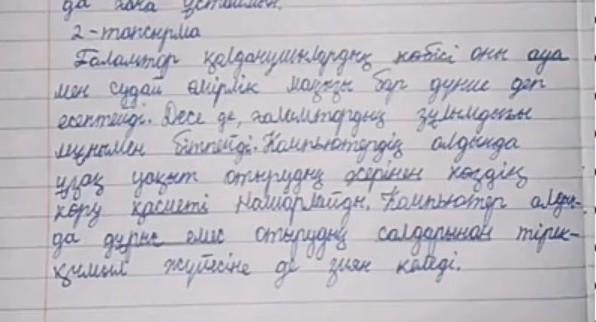 да ғана ұстаймын.
2-тапсырма
Ғаламтор қолданушылардың көбісі оны ауа
мен судай өмірлік маңызы бар дүние деп
есептейді. Десе де, ғаламтордың зұлымдығы
мұнымен бітпейді. Компьютердің алдында
ұзақ уақыт отырудың әсерінен көздің
көру қасиеті нашарлайды. Компьютер алдын-
да дұрыс емес отырудың салдарынан тірек-
қимыл жүйесіне де зиян келеді.